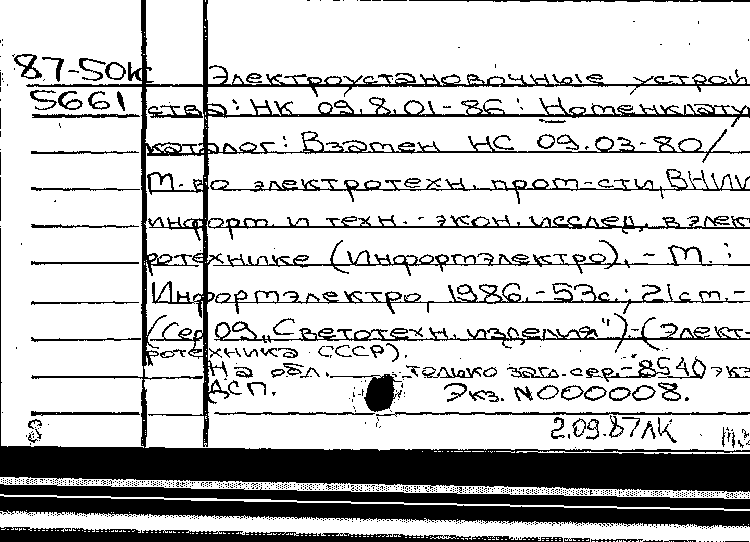 87-50к Электроустановочные устрой
5661 ства: НК 09.8.01-86: Номенклату
каталог: Взамен НС 09.03-80/
М-во электротехн. пром-сти, ВНИИ
информ. и техн.-экон. исслед. в элек
ротехнике (Информэлектро). - М.:
Информэлектро, 1986.-53с.; 21см.-
(Сер 09 „Светотехн. изделия")-(Элект-
ротехника СССР).
На обл. только загл. сер.-8540 экз
ДСП. Экз. N000008.
8 2.09.87ЛК